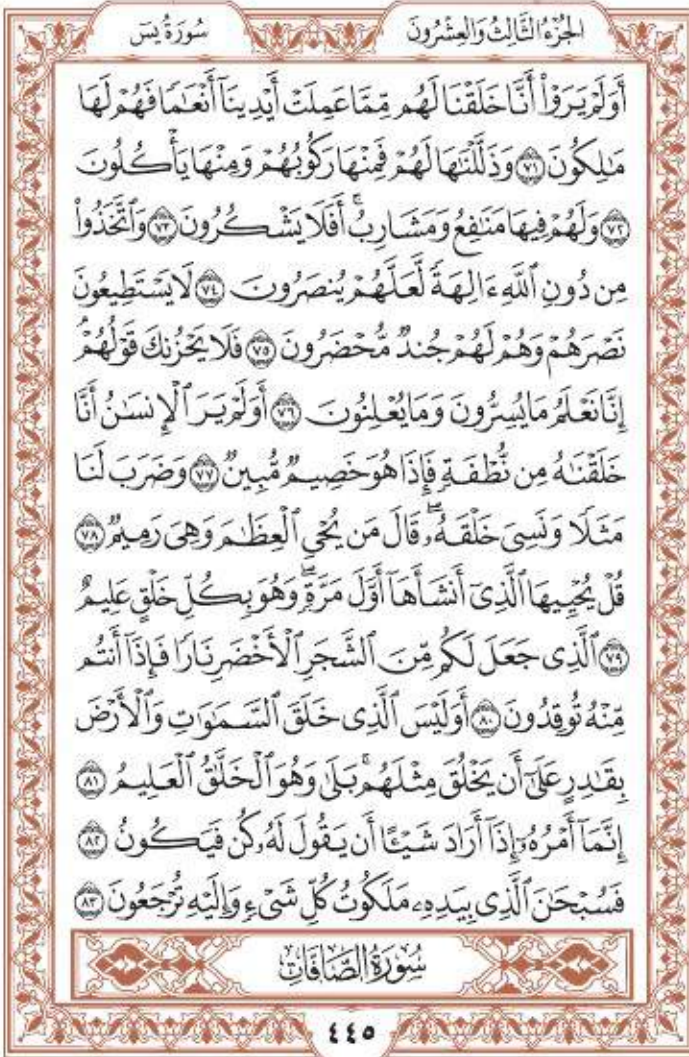 الجُزْءُ الثَّالِثُ وَالعِشْرُونَ سُورَةُ يسٓ
أَوَلَمْ يَرَوْا۟ أَنَّا خَلَقْنَا لَهُم مِّمَّا عَمِلَتْ أَيْدِينَآ أَنْعَٰمًا فَهُمْ لَهَا
مَٰلِكُونَ ٧١ وَذَلَّلْنَٰهَا لَهُمْ فَمِنْهَا رَكُوبُهُمْ وَمِنْهَا يَأْكُلُونَ
٧٢ وَلَهُمْ فِيهَا مَنَٰفِعُ وَمَشَارِبُۚ أَفَلَا يَشْكُرُونَ ٧٣ وَٱتَّخَذُوا۟
مِن دُونِ ٱللَّهِ ءَالِهَةً لَّعَلَّهُمْ يُنصَرُونَ ٧٤ لَا يَسْتَطِيعُونَ
نَصْرَهُمْ وَهُمْ لَهُمْ جُندٌ مُّحْضَرُونَ ٧٥ فَلَا يَحْزُنكَ قَوْلُهُمْۘ
إِنَّا نَعْلَمُ مَا يُسِرُّونَ وَمَا يُعْلِنُونَ ٧٦ أَوَلَمْ يَرَ ٱلْإِنسَٰنُ أَنَّا
خَلَقْنَٰهُ مِن نُّطْفَةٍ فَإِذَا هُوَ خَصِيمٌ مُّبِينٌ ٧٧ وَضَرَبَ لَنَا
مَثَلًا وَنَسِىَ خَلْقَهُۥۖ قَالَ مَن يُحْىِ ٱلْعِظَٰمَ وَهِىَ رَمِيمٌ ٧٨
قُلْ يُحْيِيهَا ٱلَّذِىٓ أَنشَأَهَآ أَوَّلَ مَرَّةٍۖ وَهُوَ بِكُلِّ خَلْقٍ عَلِيمٌ
٧٩ ٱلَّذِى جَعَلَ لَكُم مِّنَ ٱلشَّجَرِ ٱلْأَخْضَرِ نَارًا فَإِذَآ أَنتُم
مِّنْهُ تُوقِدُونَ ٨٠ أَوَلَيْسَ ٱلَّذِى خَلَقَ ٱلسَّمَٰوَٰتِ وَٱلْأَرْضَ
بِقَٰدِرٍ عَلَىٰٓ أَن يَخْلُقَ مِثْلَهُمۚ بَلَىٰ وَهُوَ ٱلْخَلَّٰقُ ٱلْعَلِيمُ ٨١
إِنَّمَآ أَمْرُهُۥٓ إِذَآ أَرَادَ شَيْـًٔا أَن يَقُولَ لَهُۥ كُن فَيَكُونُ ٨٢
فَسُبْحَٰنَ ٱلَّذِى بِيَدِهِۦ مَلَكُوتُ كُلِّ شَىْءٍ وَإِلَيْهِ تُرْجَعُونَ ٨٣
سُورَةُ الصَّافَّاتِ
٤٤٥